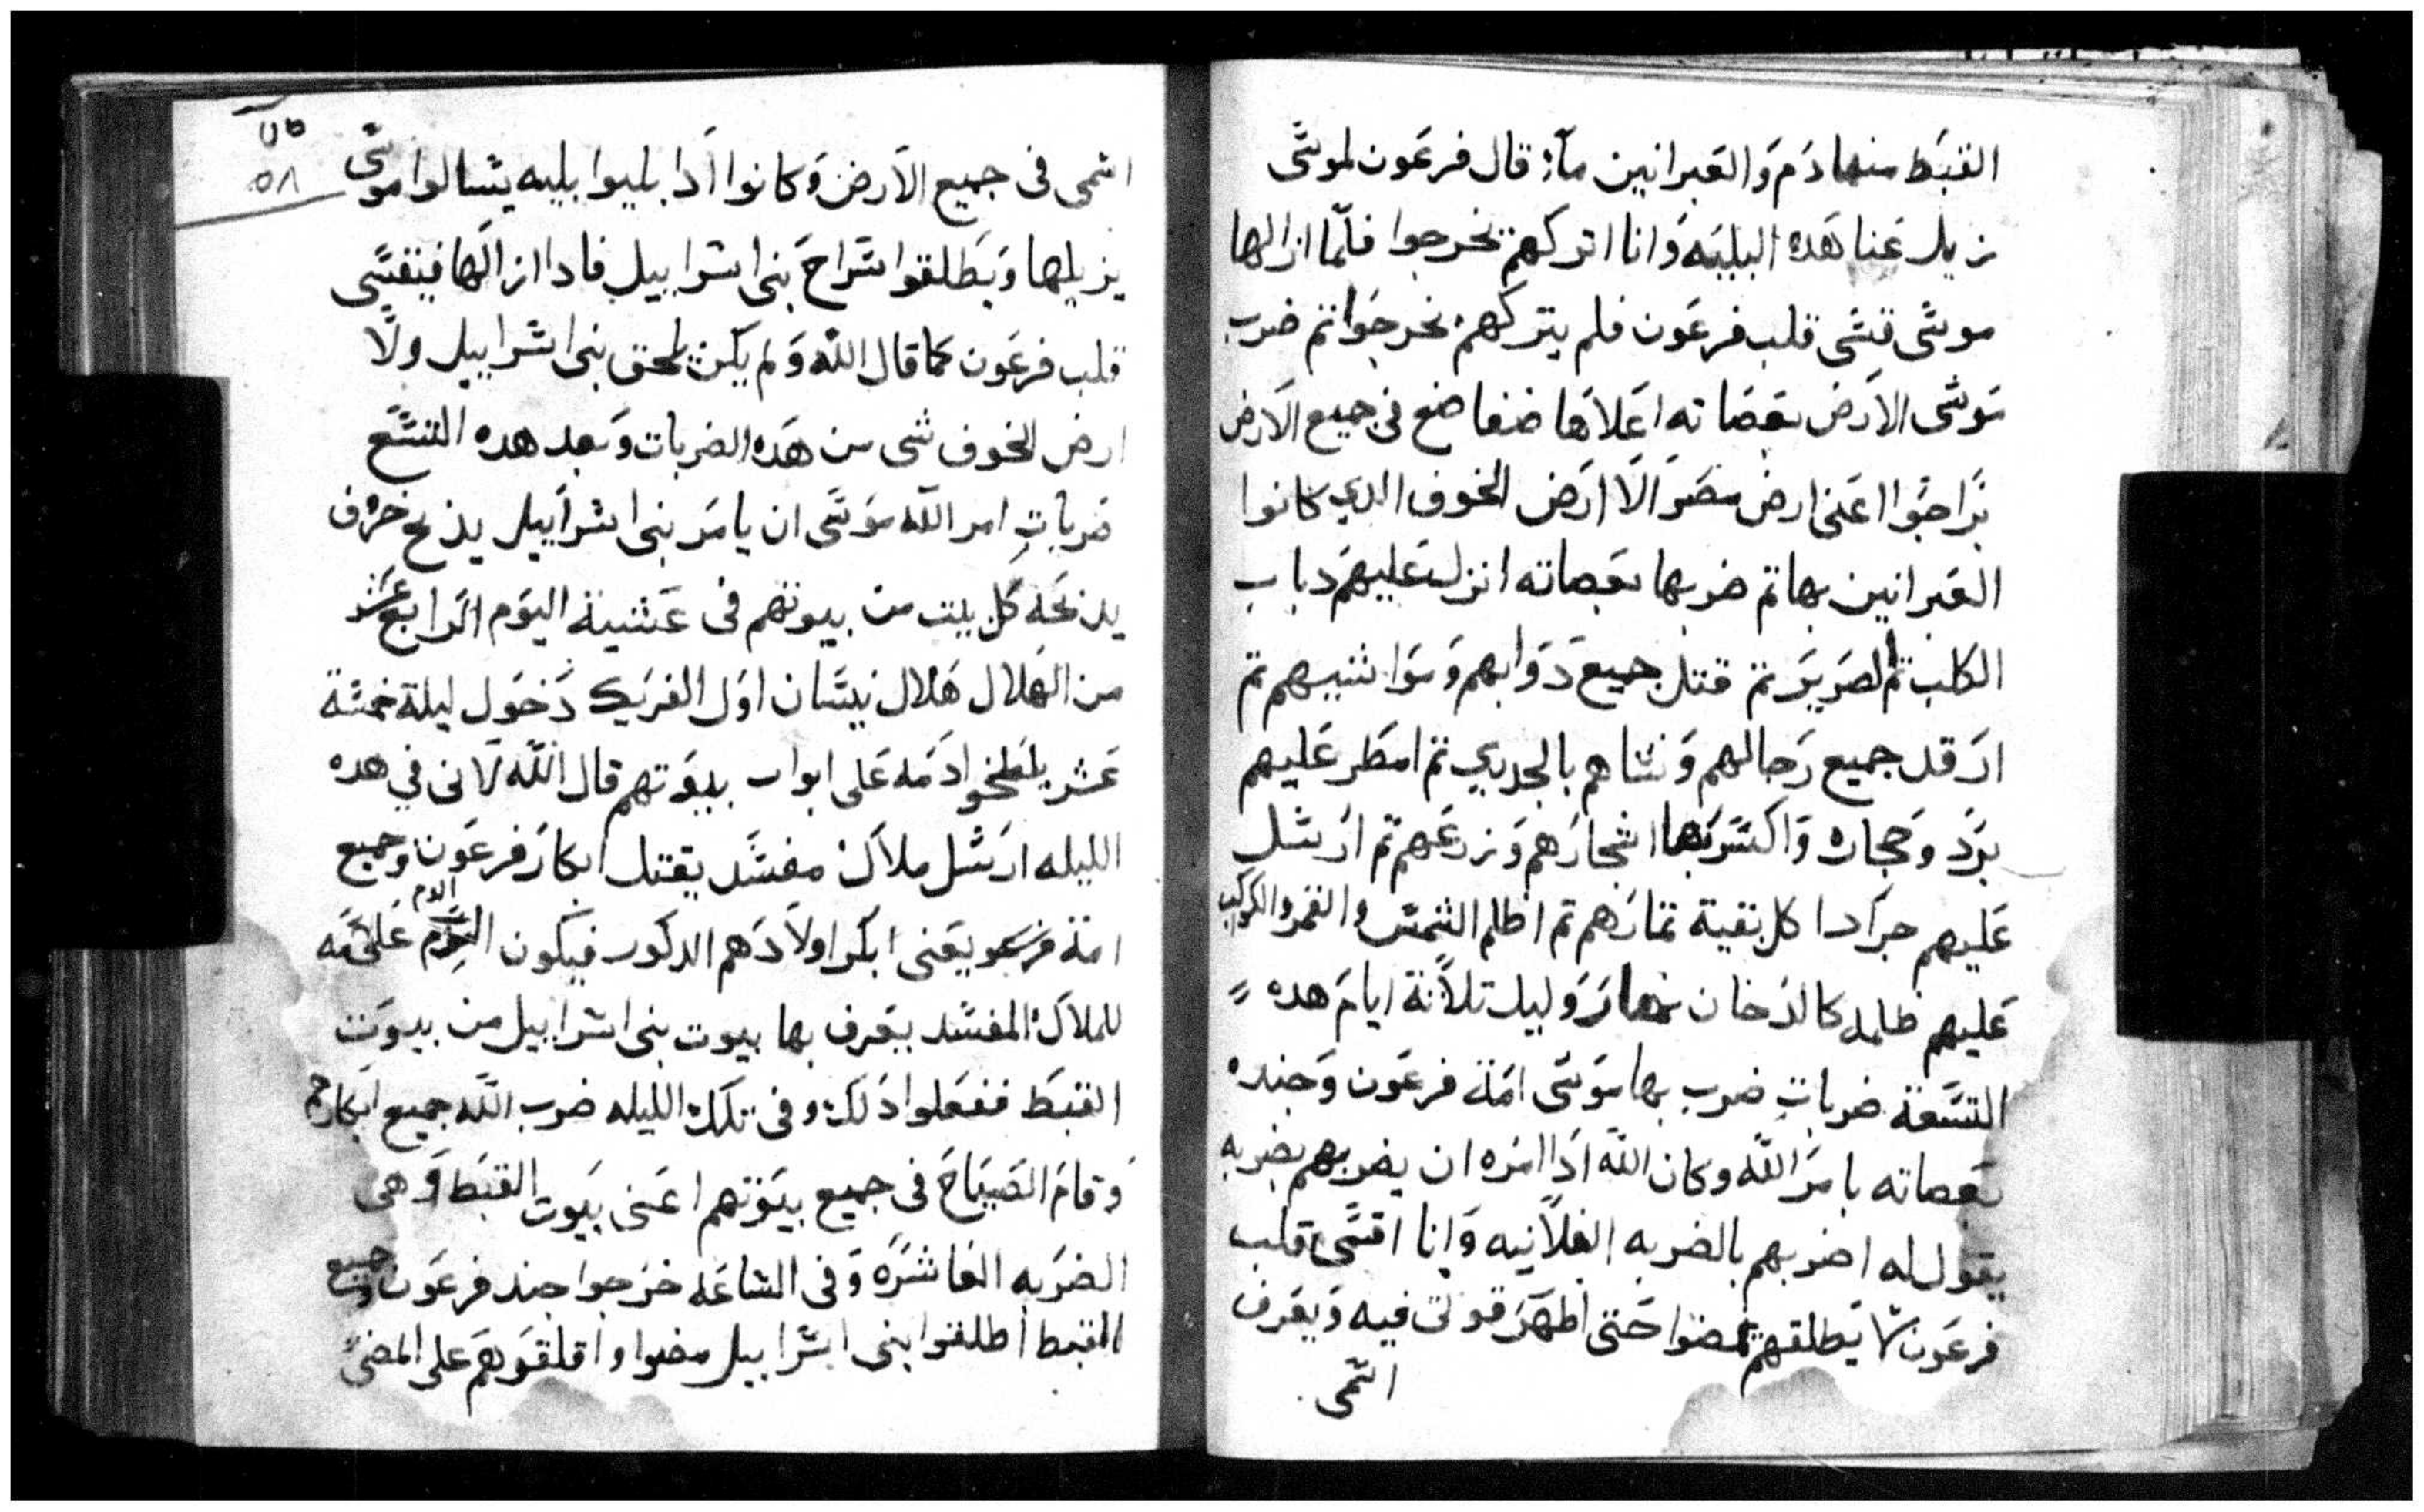 القبط منها دم والعبرانيين مآء قال فرعون لموسى
زيل عنا هده البليه وانا اتركهم يخرجوا فلما ازالها
موسى قسى قلب فرعون فلم يتركهم يخرجوا تم ضرب
موسى الارض بعصاته اعلاها ضفاضع في جميع الارض
اعني ارض مصر الا ارض الخوف الدي كانوا
العبرانيين بها تم ضربها بعصاته انزل عليهم دباب
الكلب تم الصرير تم قتل جميع دوابهم ومواشيهم تم
ارقد جميع رجالهم ونساهم بالجدري تم امطر عليهم
برد وحجاره واكسر بها اشجارهم وزرعهم تم ارسل
عليهم جرادا كل بقية تمارهم تم اظلم الشمس والقمر والكواكب
عليهم ظلمه كالدخان نهار وليل تلاتة ايام هده
التسعة ضربات ضرب بها موسى امة فرعون وجنده
بعصاته بامر الله وكان الله ادا امره ان يضربهم بضربه
يقول له اضربهم بالضربه الفلانيه وانا اقسى قلب
فرعون لا يطلقهم يمضوا حتى اظهر قوتي فيه ويعرف
اسمى
٥٨
اسمى في جميع الارض وكانوا ادا بليوا بليه يسالوا موسى
يزيلها ويطلقوا سراح بنى اسراييل فادا ازالها فيتقسى
قلب فرعون كما قال الله ولم يكن يلحق بنى اسراييل ولا
ارض الخوف شى من هده الضربات وبعد هده التسع
ضربات امر الله موسى ان يامر بنى اسراييل يدبح خروف
يدبحه كل بيت من بيوتهم فى عشية اليوم الرابع عشر
من الهلال هلال نيسان اول الفريك دخول ليلة خمسة
عشر يلطخوا دمه على ابواب بيوتهم قال الله لانى في هده
الليله ارسل ملاك مفسد يقتل ابكار فرعون وجميع
امة فرعو يعنى ابكر اولادهم الدكور فيكون الدم علامه
للملاك المفسد يعرف بها بيوت بنى اسراييل من بيوت
القبط ففعلوا دلك وفى تلك الليله ضرب الله جميع ابكارهم
وقام الصياح فى جميع بيوتهم اعنى بيوت القبط وهى
الضربه العاشره وفى الساعه خرجوا جند فرعون وجميع
القبط اطلقوا بنى اسراييل مضوا واقلقوهم على المضى